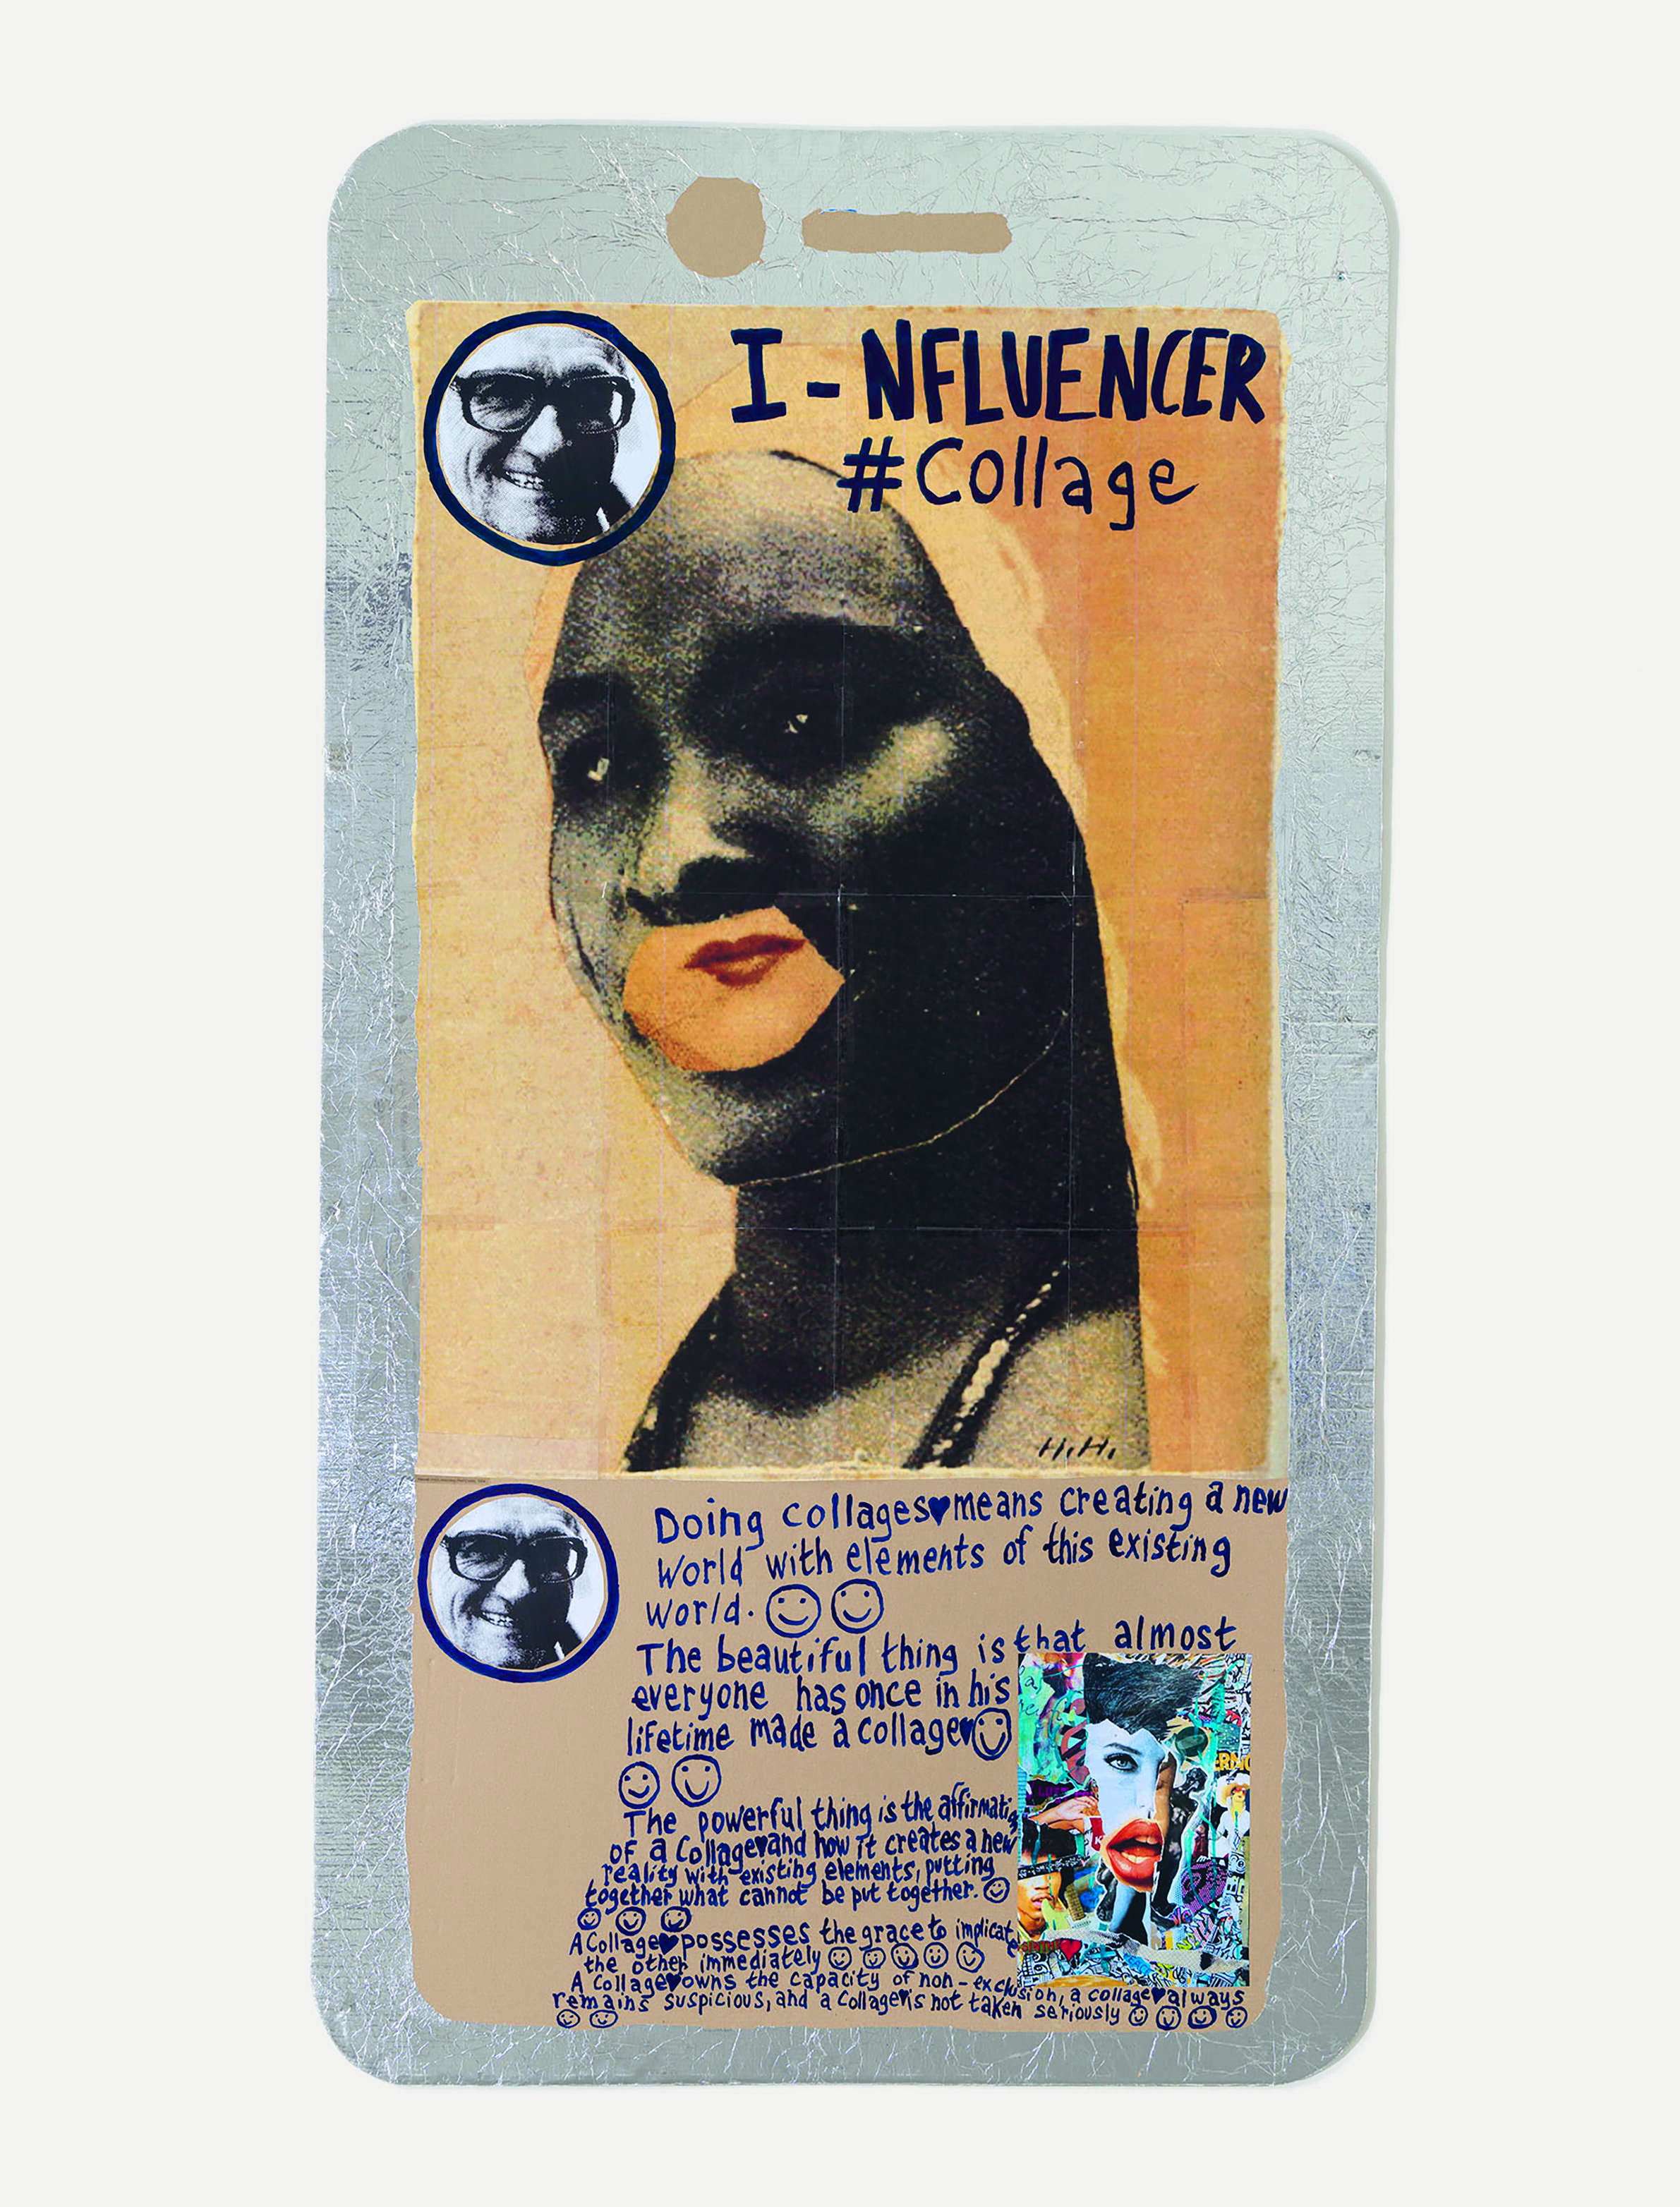 I-NFLUENCER
#Collage
H.H.
Doing collages♥means creating a new
World with elements of this existing
world. ☺☺
The beautiful thing is that almost
everyone has once in his
lifetime made a collage♥☺
☺☺
The powerful thing is the affirmatig
of a Collage♥and how it creates a new
reality with existing elements, putting
together what cannot be put together. ☺
☺☺☺
A Collage♥possesses the grace to implicate
the other immediately ☺☺☺☺☺
A Collage♥owns the capacity of non-exclusion, a collage♥always
remains suspicious, and a Collage♥is not taken seriously ☺☺☺☺
☺☺